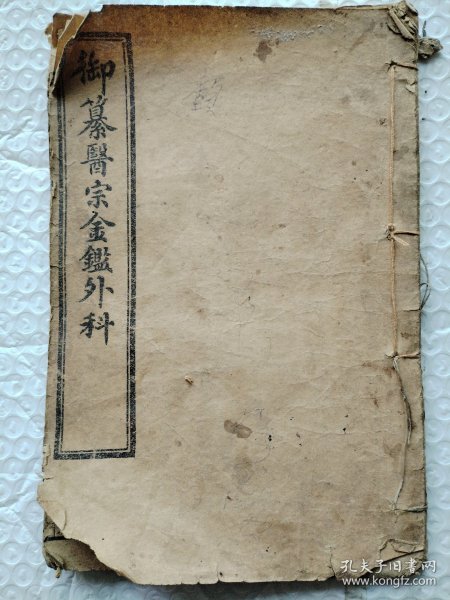 御纂醫宗金鑑外科
孔夫子旧书网
www.kongfz.com